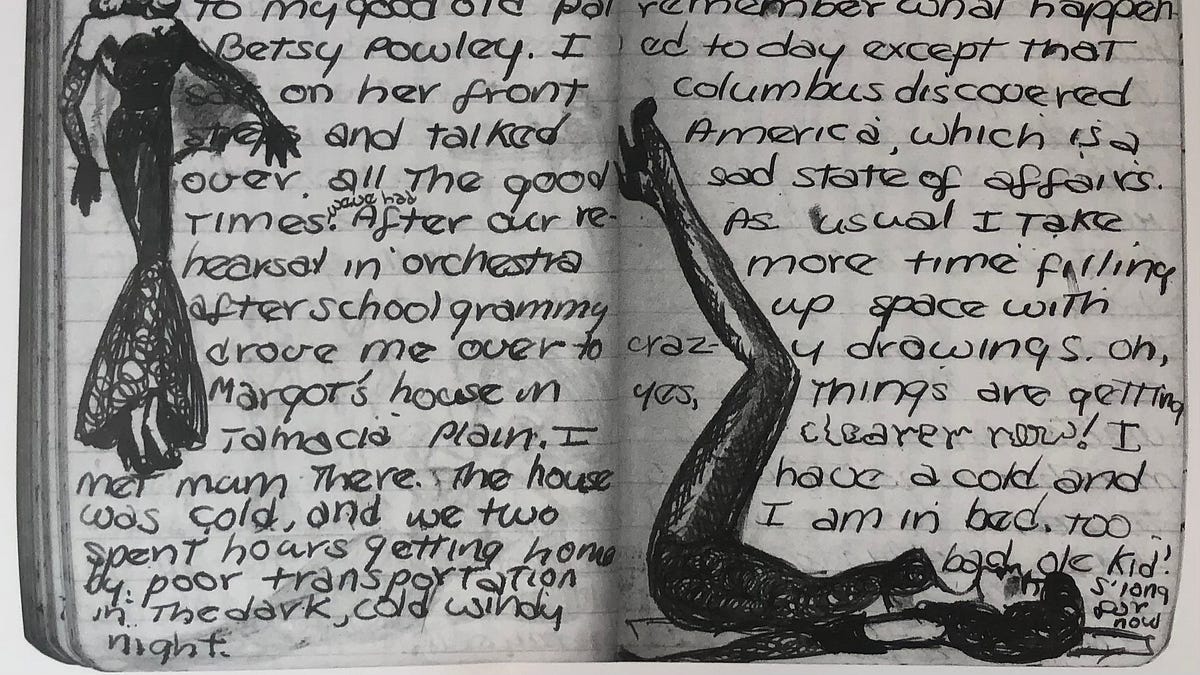 to my good old pal
Betsy Powley. I
sat on her front
steps and talked
over all the good
times we've had. After our re-
hearsal in orchestra
after school grammy
drove me over to
Margot's house in
Jamacia Plain. I
met mum there. The house
was cold, and we two
spent hours getting home
by poor transportation
in the dark, cold windy
night.
remember what happen-
ed today except that
columbus discovered
America, which is a
sad state of affairs.
As usual I take
more time filling
up space with
craz- y drawings. oh,
yes, things are getting
clearer now! I
have a cold and
I am in bed. too
bad, ole kid!
s'long
for
now